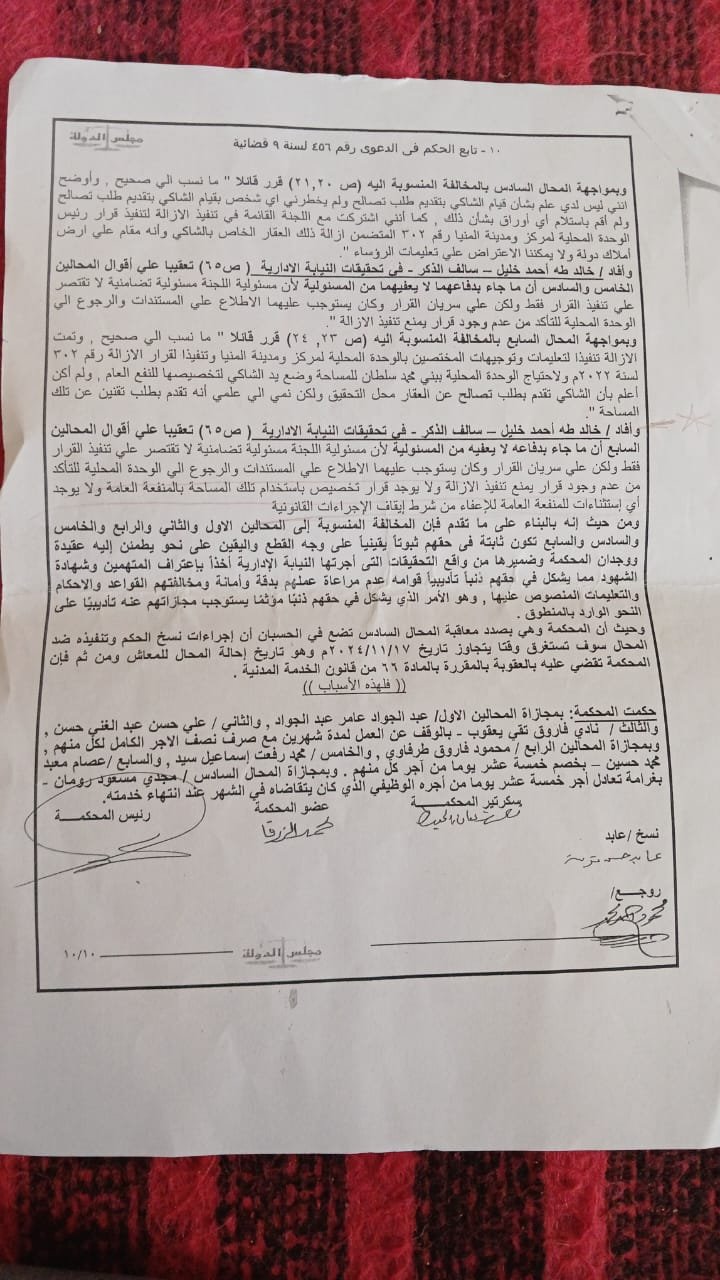 مجلس الدولة
١٠- تابع الحكم فى الدعوى رقم ٤٥٦ لسنة ٩ قضائية
وبمواجهة المحال السادس بالمخالفة المنسوبة اليه (ص ٢١,٢٠) قرر قائلا " ما نسب الي صحيح , وأوضح
انني ليس لدي علم بشأن قيام الشاكي بتقديم طلب تصالح ولم يخطرني اي شخص بقيام الشاكي بتقديم طلب تصالح
ولم أقم باستلام أي أوراق بشأن ذلك , كما أنني اشتركت مع اللجنة القائمة في تنفيذ الازالة لتنفيذ قرار رئيس
الوحدة المحلية لمركز ومدينة المنيا رقم ٣٠٢ المتضمن ازالة ذلك العقار الخاص بالشاكي وأنه مقام علي ارض
أملاك دولة ولا يمكننا الاعتراض علي تعليمات الرؤساء ".
وأفاد / خالد طه أحمد خليل – سالف الذكر - في تحقيقات النيابة الادارية ( ص٦٥) تعقيبا علي أقوال المحالين
الخامس والسادس أن ما جاء بدفاعهما لا يعفيهما من المسئولية لأن مسئولية اللجنة مسئولية تضامنية لا تقتصر
علي تنفيذ القرار فقط ولكن علي سريان القرار وكان يستوجب عليهما الاطلاع علي المستندات والرجوع الي
الوحدة المحلية للتأكد من عدم وجود قرار يمنع تنفيذ الازالة ".
وبمواجهة المحال السابع بالمخالفة المنسوبة اليه (ص ٢٣, ٢٤) قرر قائلا " ما نسب الي صحيح , وتمت
الازالة تنفيذا لتعليمات وتوجيهات المختصين بالوحدة المحلية لمركز ومدينة المنيا وتنفيذا لقرار الازالة رقم ٣٠٢
لسنة ٢٠٢٢م ولاحتياج الوحدة المحلية ببني محمد سلطان للمساحة وضع يد الشاكي لتخصيصها للنفع العام , ولم أكن
أعلم بأن الشاكي تقدم بطلب تصالح عن العقار محل التحقيق ولكن نمي الي علمي أنه تقدم بطلب تقنين عن تلك
المساحة ".
وأفاد / خالد طه أحمد خليل – سالف الذكر - في تحقيقات النيابة الادارية ( ص٦٥) تعقيبا علي أقوال المحالين
السابع أن ما جاء بدفاعه لا يعفيه من المسئولية لأن مسئولية اللجنة مسئولية تضامنية لا تقتصر علي تنفيذ القرار
فقط ولكن علي سريان القرار وكان يستوجب عليهما الاطلاع علي المستندات والرجوع الي الوحدة المحلية للتأكد
من عدم وجود قرار يمنع تنفيذ الازالة ولا يوجد قرار تخصيص باستخدام تلك المساحة بالمنفعة العامة ولا يوجد
أي إستثناءات للمنفعة العامة للإعفاء من شرط إيقاف الإجراءات القانونية
ومن حيث إنه بالبناء على ما تقدم فإن المخالفة المنسوبة إلى المحالين الاول والثاني والرابع والخامس
والسادس والسابع تكون ثابتة في حقهم ثبوتاً يقينياً على وجه القطع واليقين على نحو يطمئن إليه عقيدة
ووجدان المحكمة وضميرها من واقع التحقيقات التى أجرتها النيابة الإدارية أخذاً بإعتراف المتهمين وشهادة
الشهود مما يشكل في حقهم ذنباً تأديبياً قوامه عدم مراعاة عملهم بدقة وأمانة ومخالفتهم القواعد والاحكام
والتعليمات المنصوص عليها , وهو الأمر الذي يشكل في حقهم ذنبًا مؤثمًا يستوجب مجازاتهم عنه تأديبيًا على
النحو الوارد بالمنطوق .
وحيث أن المحكمة وهي بصدد معاقبة المحال السادس تضع في الحسبان أن إجراءات نسخ الحكم وتنفيذه ضد
المحال سوف تستغرق وقتا يتجاوز تاريخ ٢٠٢٤/١١/١٧م وهو تاريخ إحالة المحال للمعاش ومن ثم فإن
المحكمة تقضي عليه بالعقوبة بالمقررة بالمادة ٦٦ من قانون الخدمة المدنية .
(( فلهذه الأسباب ))
حكمت المحكمة: بمجازاة المحالين الاول/ عبد الجواد عامر عبد الجواد , والثاني / علي حسن عبد الغني حسن ,
والثالث / نادي فاروق تقي يعقوب - بالوقف عن العمل لمدة شهرين مع صرف نصف الاجر الكامل لكل منهم ,
وبمجازاة المحالين الرابع / محمود فاروق طرفاوي , والخامس / محمد رفعت إسماعيل سيد , والسابع /عصام معبد
محمد حسين – بخصم خمسة عشر يوما من أجر كل منهم . وبمجازاة المحال السادس / مجدي مسعود رومان -
بغرامة تعادل أجر خمسة عشر يوما من أجره الوظيفي الذي كان يتقاضاه في الشهر عند انتهاء خدمته.
سكرتير المحكمة
عضو المحكمة
رئيس المحكمة
نسخ /عابد
روجع/
مجلس الدولة
١٠/١٠